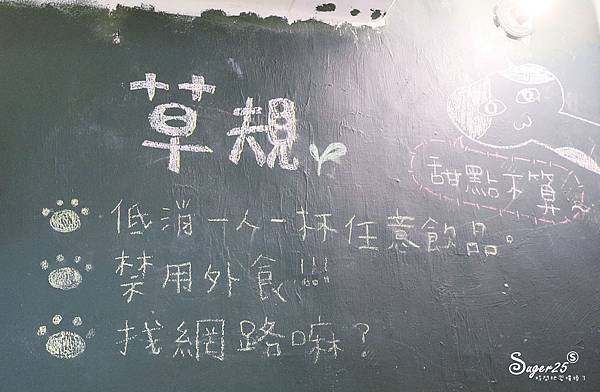 草規
甜點不算
低消一人一杯任意飲品。
禁用外食!!!
找網路嘛?
Suger25